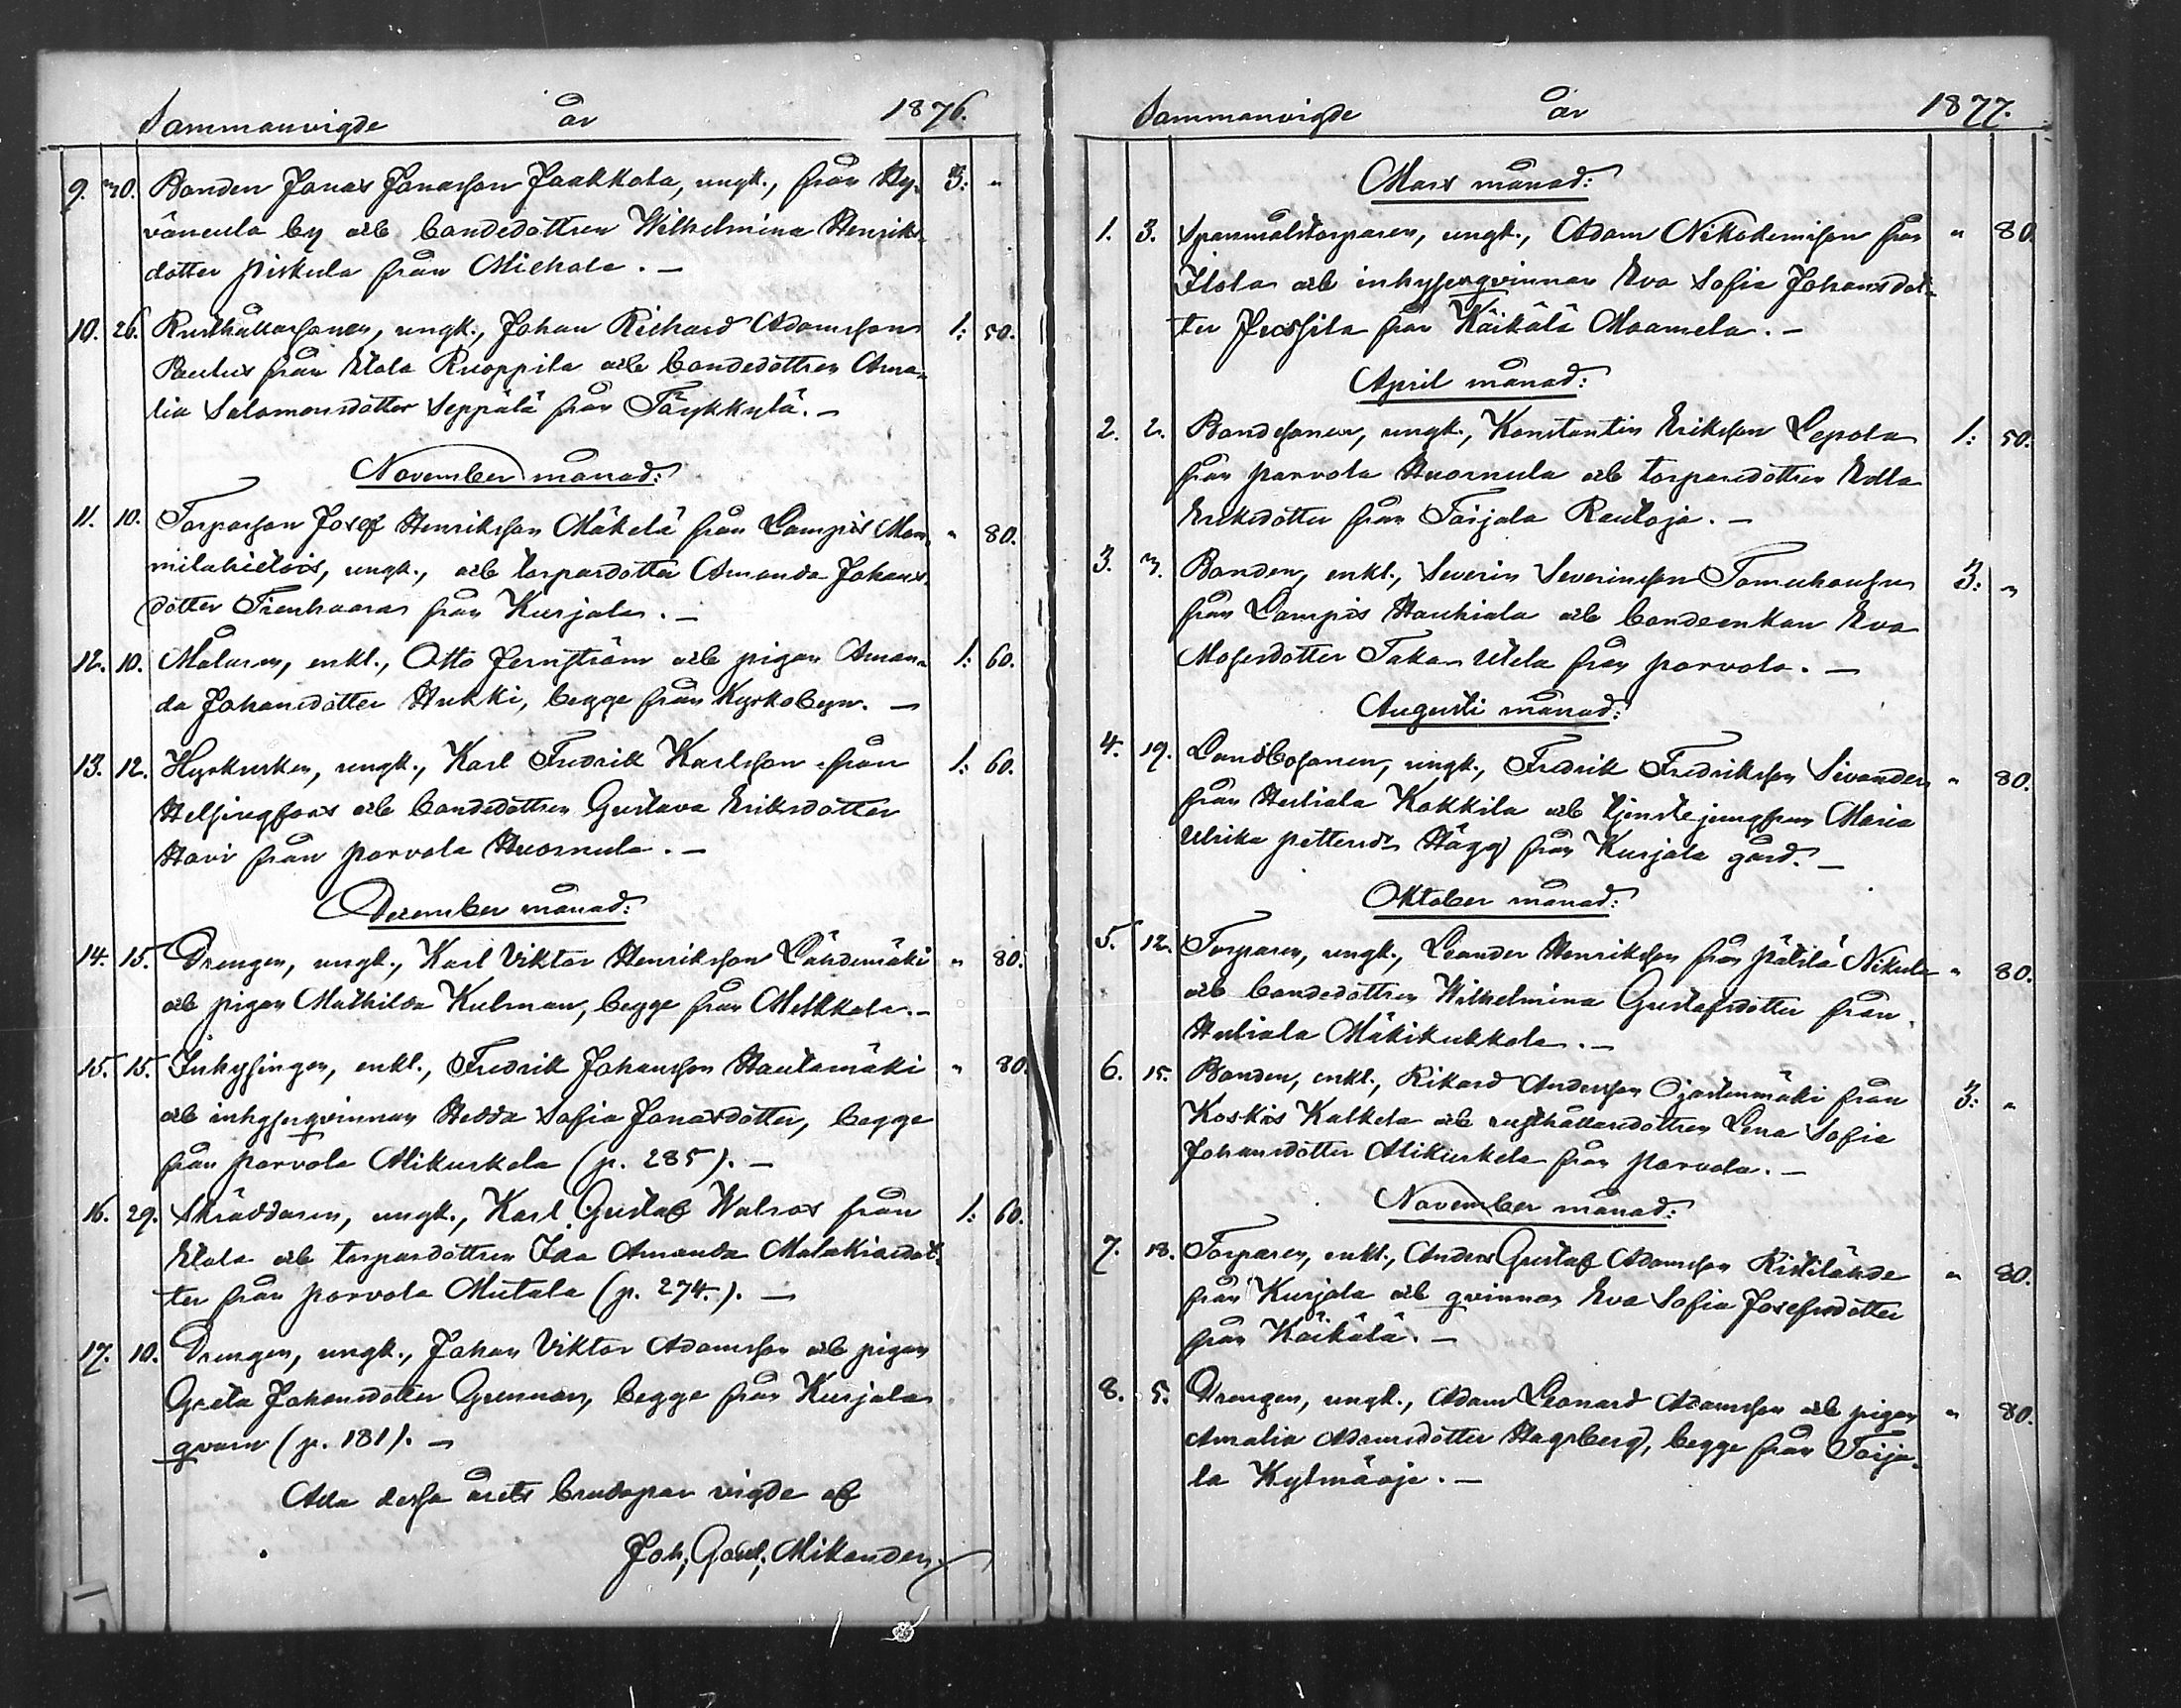 Sammanvigde år 1876.
9. 20. Bonden Jonas Jonasson Jaakkola, ungk., från Hy- 3: "
väneula by och bondedottren Wilhelmina Henriks-
dotter Piskula från Miehola. —
10. 26. Rusthållarsonen, ungk., Johan Richard Adamsson 1: 50.
Paulus från Etola Ruoppila och bondedottren Ama-
lia Salomonsdotter Seppälä från Töykkylä. —
November månad:
11. 10. Torparson Josef Henriksson Mäkelä från Lampis " 80.
ungk., och torpardotter Amanda Johans-
dotter Tienhaara från Kurjala. —
12. 10. Målaren, enkl., Otto Jernström och pigan Aman- 1: 60.
da Johansdotter Hukki, begge från Kyrkobyn. —
13. 12. Hyrkusken, ungk., Karl Fredrik Karlsson från 1: 60.
Helsingfors och bondedottren Gustava Eriksdotter
Hovi från Porvola Huornula. —
December månad:
14. 15. Drengen, ungk., Karl Viktor Henriksson Lähdemäki " 80.
och pigan Mathilda Kulman, begge från Metkkola. —
15. 15. Inhysingen, enkl., Fredrik Johansson Hautamäki " 80.
och inhyseqvinnan Hedda Sofia Jonasdotter, begge
från Porvola Alikuskela (p. 285). —
16. 29. Skräddaren, ungk., Karl Gustaf Walros från 1: 60.
Etola och torpardottren Ida Amanda Malakiasdot-
ter från Porvola Mutala (p. 274.). —
17. 10. Drengen, ungk., Johan Viktor Adamsson och pigan
Greta Johansdotter Grennan, begge från Kurjala
qvarn (p. 181). —
Alla dessa årets brudapar vigde af
Joh. Gost. Mikander
Sammanvigde år 1877.
Mars månad:
1. 3. Spanmålstorparen, ungk., Adam Nikodemisson från " 80.
Ilola och inhyseqvinnan Eva Sofia Johansdot-
ter Jussila från Käikälä Maamela. —
April månad:
2. 2. Bondesonen, ungk., Konstantin Eriksson Lepola 1: 50.
från Porvola Huornula och torparedottren Edla
Eriksdotter från Toijala Rautoja. —
3. 3. Bonden, enkl., Severin Severinsson Tomuhonsu 3: "
från Lampis Hauhiala och bondeenkan Eva
Mosesdotter Taka-Utela från Porvola. —
Augusti månad:
4. 19. Landbosonen, ungk., Fredrik Fredriksson Sivander " 80.
från Huliala Kokkila och tjenstejungfrun Maria
Ulrika Pettersdr Hägg från Kurjala gård. —
Oktober månad:
5. 12. Torparen, ungk., Leander Henriksson från Pätilä Nikula " 80.
och bondedottren Wilhelmina Gustafsdotter från
Huliala Mäkikukkola. —
6. 15. Bonden, enkl., Rikard Andersson Ojastenmäki från 3: "
Koskis Kalkela och rusthållaredottren Lena Sofia
Johansdotter Alikuskela från Porvola. —
November månad:
7. 18. Torparen, enkl., Anders Gustaf Adamsson Ristilähde " 80.
från Kurjala och qvinnan Eva Sofia Josefsdotter
från Käikälä. —
8. 5. Drengen, ungk., Adam Leonard Adamsson och pigan " 80.
Amalia Adamsdotter Hagsberg, begge från Toija-
la Kylmäoja. —